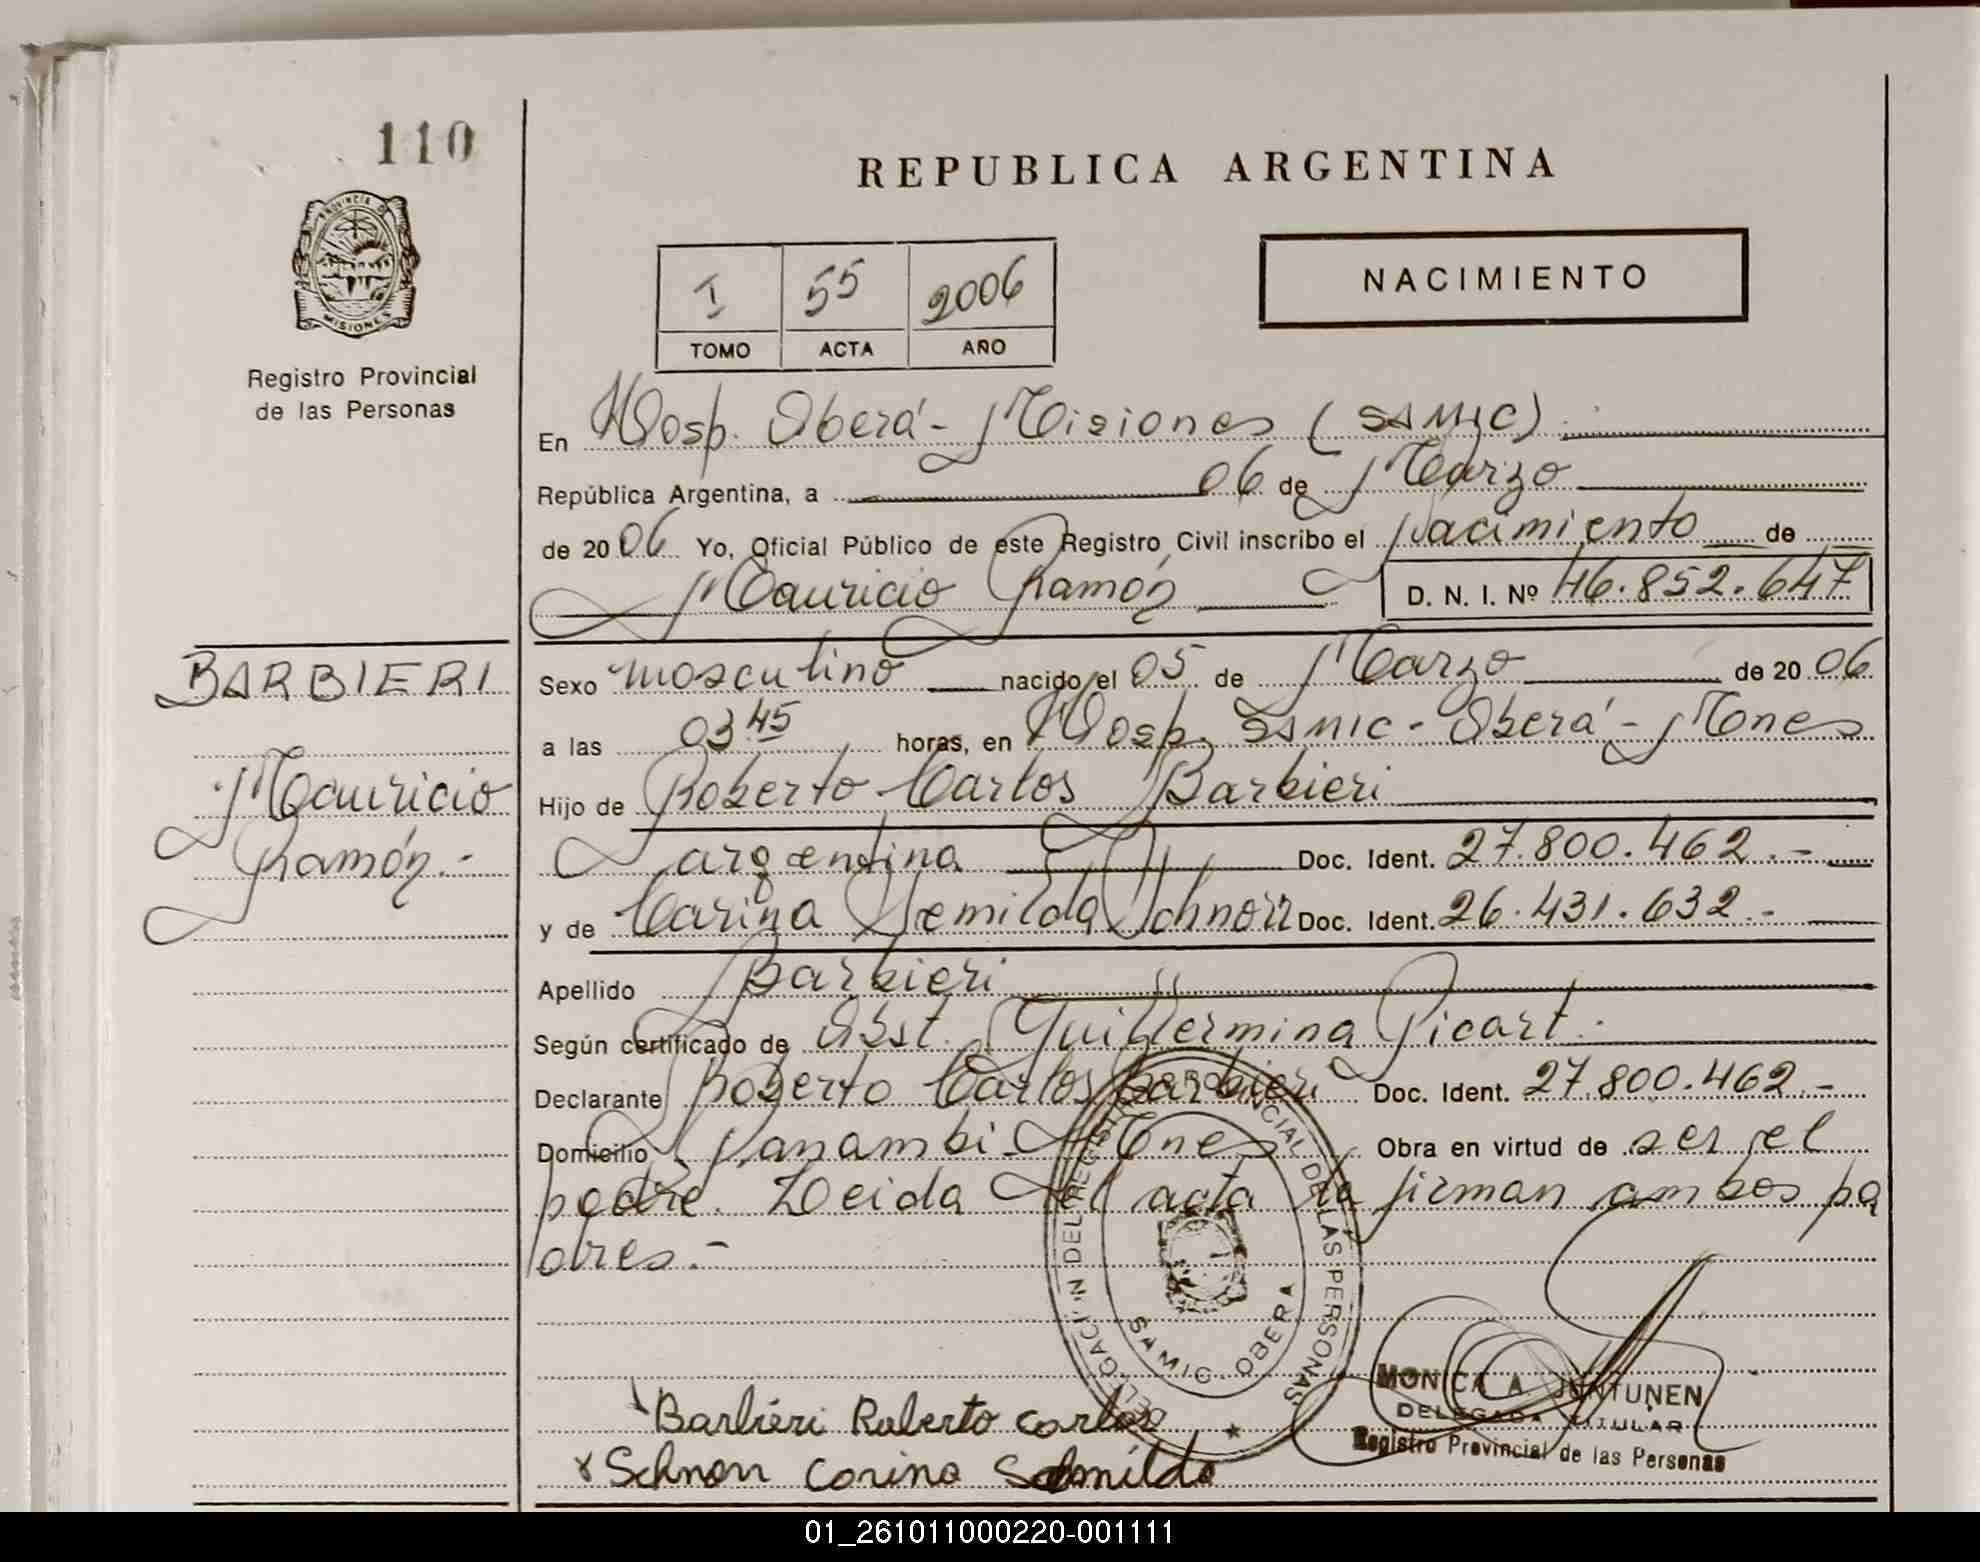 110
REPUBLICA ARGENTINA
PROVINCIA DE
MISIONES
Registro Provincial
de las Personas
I 55 2006
TOMO ACTA AÑO
NACIMIENTO
En Hosp. Oberá - Misiones (SAMIC).
República Argentina, a 06 de Marzo
de 2006 Yo, Oficial Público de este Registro Civil inscribo el Nacimiento de
Mauricio Ramón D. N. I. Nº 46.852.647
BARBIERI
Mauricio
Ramón.-
Sexo masculino nacido el 05 de Marzo de 2006
a las 03 45 horas, en Hosp. SAMIC - Oberá - Mnes
Hijo de Roberto Carlos Barbieri
argentina Doc. Ident. 27.800.462.-
y de Carina Schnorr Doc. Ident. 26.431.632.-
Apellido Barbieri
Según certificado de Obst. Guillermina Picart.
Declarante Roberto Carlos Barbieri Doc. Ident. 27.800.462.-
Domicilio Panambí - Mnes Obra en virtud de ser el
padre. Leida el acta la firman ambos pa
dres.-
DELEGACION DEL REGISTRO PROVINCIAL DE LAS PERSONAS
SAMIC - OBERA
MONICA A. JUNTUNEN
DELEGADA TITULAR
Registro Provincial de las Personas
Barbieri Roberto Carlos
x Schnorr Carina
01_261011000220-001111